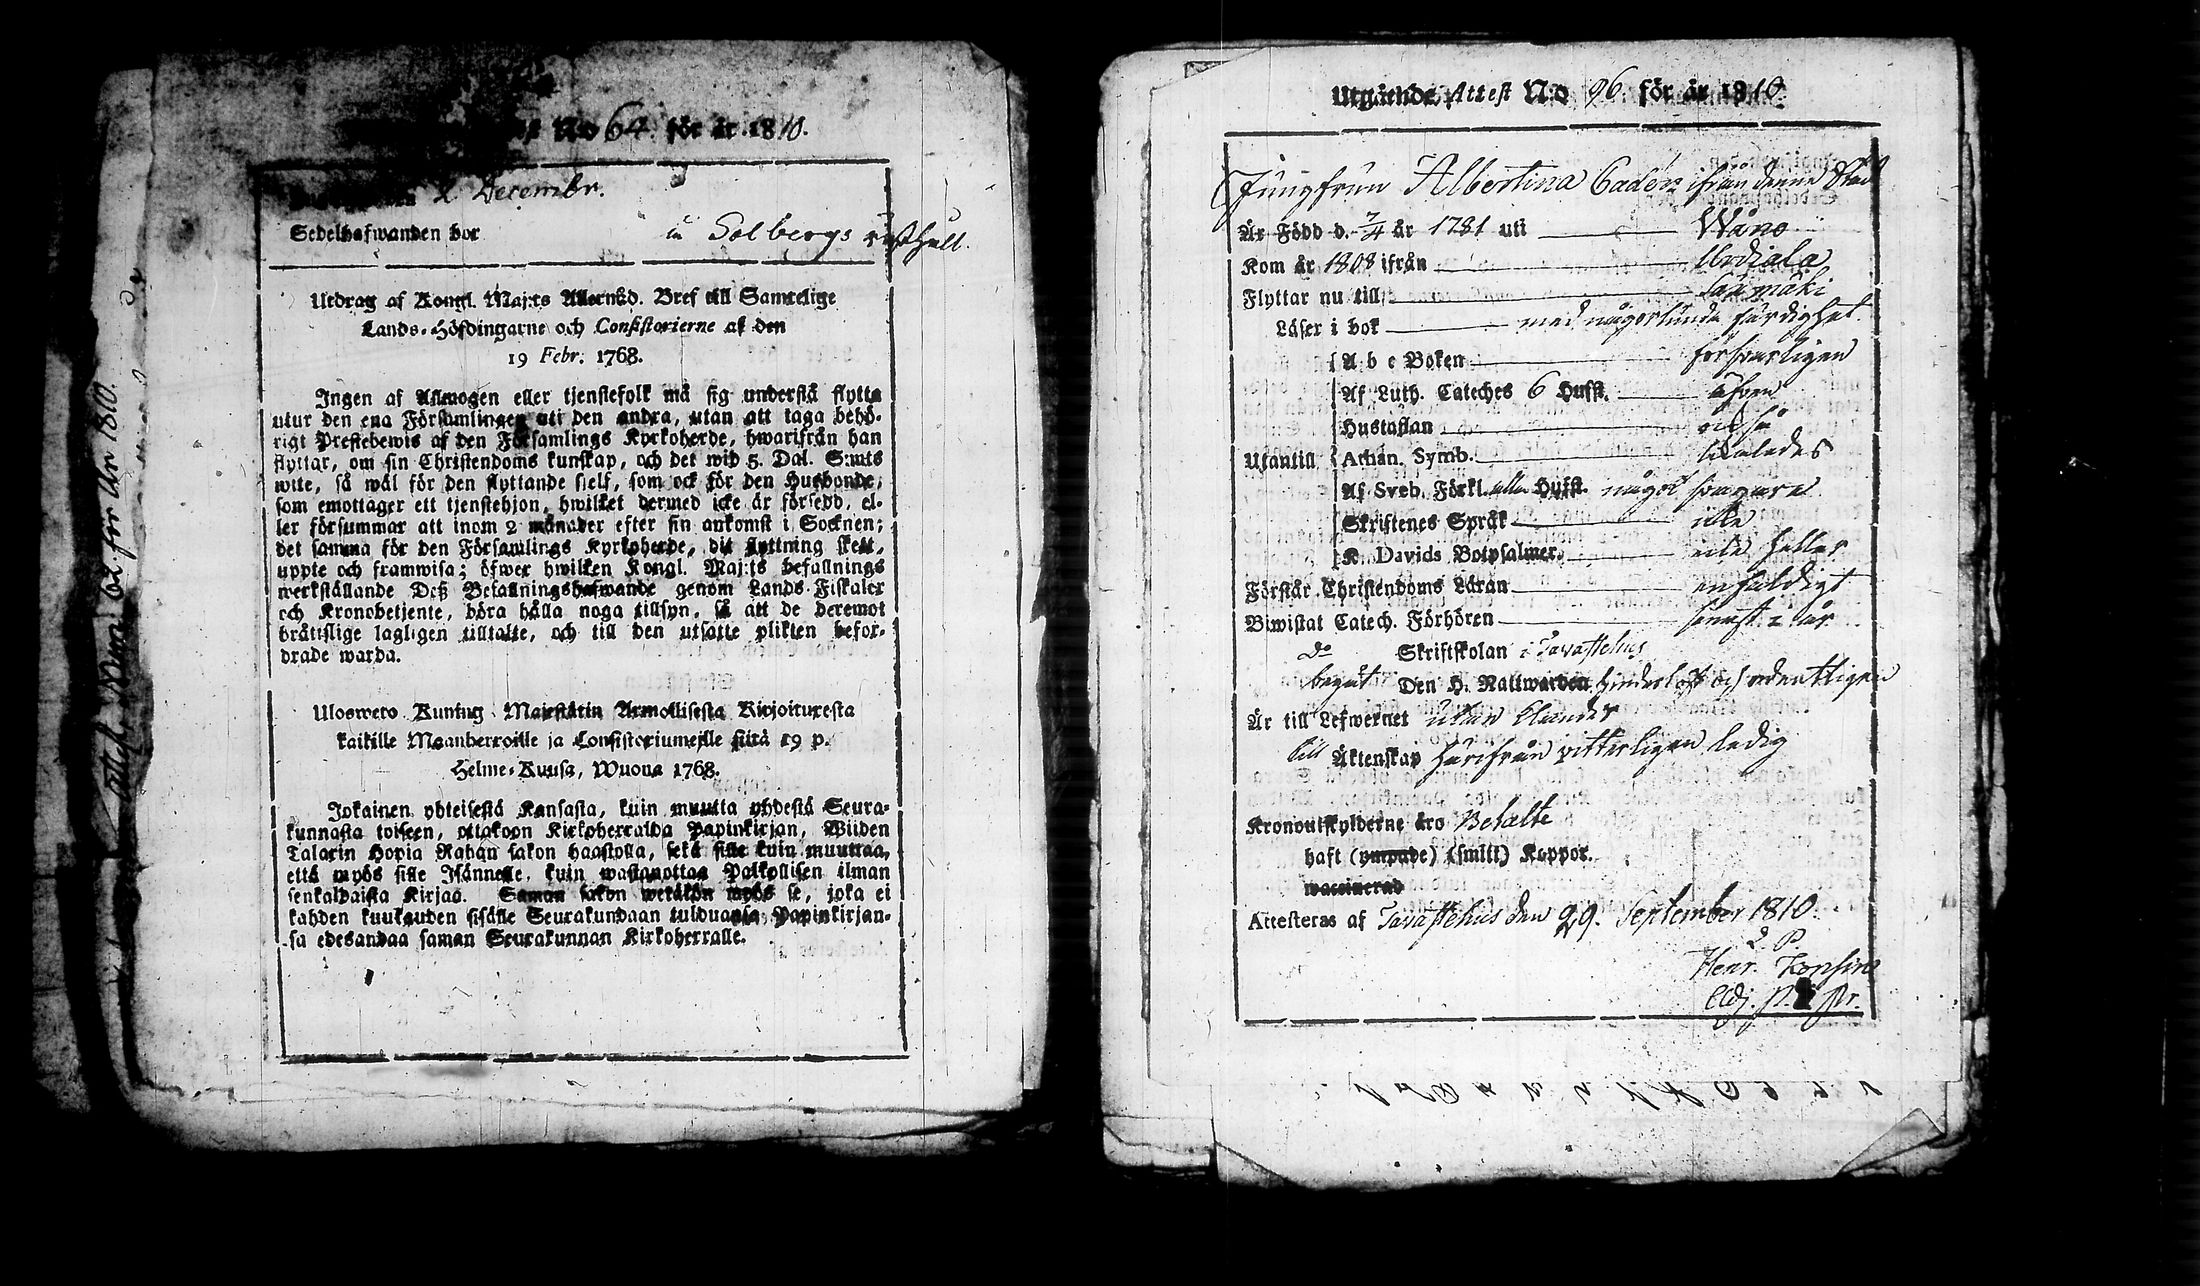 No 64. för år 1810.
2 Decembr.
Sedelhafwanden bor i Solbergs rusthåll.
Utdrag af Kongl. Maj:ts Allernåd. Bref till Samtelige
Lands-Höfdingarne och Consistorierne af den
19 Febr. 1768.
Ingen af Allmogen eller tjenstefolk må sig understå flytta
utur den ena Församlingen uti den andra, utan att taga behö-
rigt Prestebewis af den Församlings Kyrkoherde, hwarifrån han
flyttar, om sin Christendoms kunskap, och det wid 5. Dal. S:mts
wite, så wäl för den flyttande sielf, som ock för den Husbonde,
som emottager ett tjenstehjon, hwilket dermed icke är försedd, el-
ler försummar att inom 2 månader efter sin ankomst i Socknen;
det samma för den Församlings Kyrkoherde, dit flyttning skett,
uppte och framwisa; öfwer hwilken Kongl. Maj:ts befallnings
werkställande Deß Befallningshafwande genom Lands-Fiskaler
och Kronobetjente, böra hålla noga tillsyn, så att de deremot
bråttslige lagligen tilltalte, och till den utsatte plikten befor-
drade warda.
Uloswero Kuning. Majestätin Armollisesta Kirjoituxesta
kaikille Maanherroille ja Consistoriumeille siitä 19 p.
Helme-Kuusa, Wuona 1768.
Jokainen yhteisestä Kansasta, kuin muutta yhdestä Seura-
kunnasta toiseen, ottakoon Kirkoherralda Papinkirjan, Wiiden
Talarin Hopia Rahan sakon haastolla, sekä sille kuin muuttaa,
että myös sille Isännelle, kuin wastanottaa Palkollisen ilman
senkaldaista Kirjaa. Saman sakon wetäkön myös se, joka ei
kahden kuukauden sisälle Seurakundaan tulduansa, Papinkirjan-
sa edesandaa saman Seurakunnan Kirkoherralle.
för År 1810.
Utgående Attest N:o 96. för år 1810.
Jungfrun Albertina Caden ifrån denne Stad
Är Född d. 7/4 år 1781 uti Wåno
Kom år 1808 ifrån Urdiala
Flyttar nu till Saxmäki
Läser i bok med någorlunda färdighet.
A b c Boken försvarligen
Af Luth. Cateches 6 Hufst. äfven
Hustaflan också
Utantill Athan. Symb. likaledes
Af Sveb. Förkl. alla Hufst. något svagare
Skriftenes Språk icke
K. Davids Botpsalmer. icke heller
Förstår Christendoms Läran enfaldigt
Biwistat Catech. Förhören sennst 2 år
Do Skriftskolan i Tavastehus
begåt Den H. Nattwarden hinderlöst och ordentligen
Är till Lefwernet utan klander
till Äktenskap härifrån vitterligen ledig
Kronoutskylderne äro Betalte
haft (ympade) (smitt) Koppor.
waccinerad
Attesteras af Tavastehus den 29. September 1810.
Henr.
Adj.